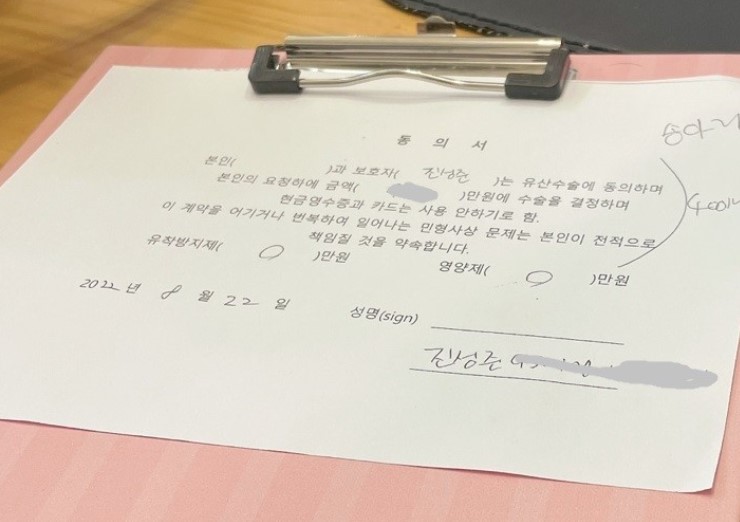 동 의 서
본인( )과 보호자( 진성준 )는 유산수술에 동의하며
본인의 요청하에 금액( )만원에 수술을 결정하며
현금영수증과 카드는 사용 안하기로 함.
이 계약을 어기거나 번복하여 일어나는 민형사상 문제는 본인이 전적으로
책임질 것을 약속합니다.
유착방지제( O )만원 영양제( O )만원
2022 년 8 월 22 일 성명(sign)
진성준